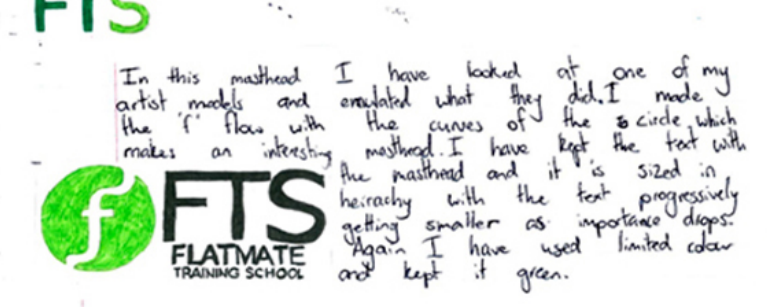 FTS
In this masthead I have looked at one of my
artist models and emulated what they did. I made
the 'f' flow with the curves of the circle which
makes an interesting masthead. I have kept the text with
the masthead and it is sized in
heirachy with the text progressively
getting smaller as importance drops.
Again I have used limited colour
and kept it green.
f FTS
FLATMATE
TRAINING SCHOOL